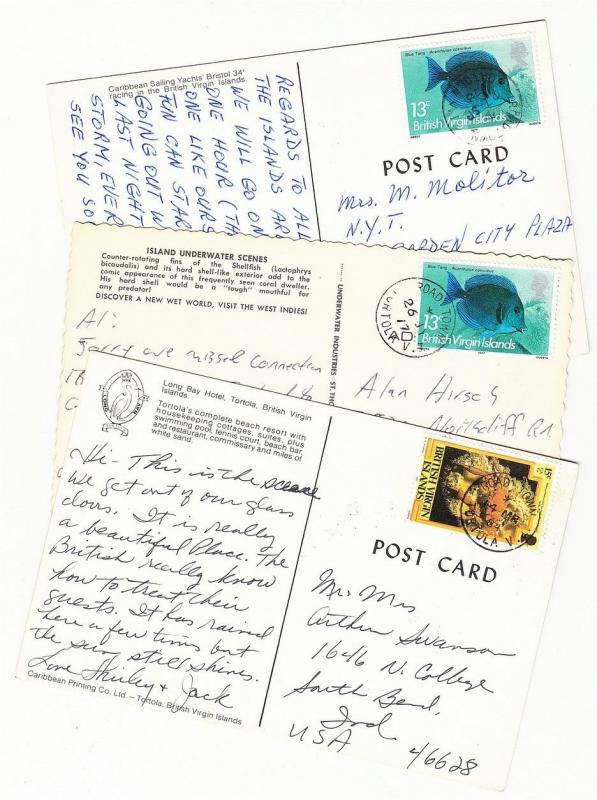 Caribbean Sailing Yachts' Bristol 34'
racing in the British Virgin Islands.
REGARDS TO ALL
THE ISLANDS ARE
WE WILL GO ON
ONE HOUR (TH
ONE LIKE OURS
FUN CAN STAR
GOING OUT W
LAST NIGHT
STORM, EVER
SEE YOU SO
Blue Tang Acanthurus coeruleus
13c
British Virgin Islands
POST CARD
Mrs. M. Molitor
N.Y.T.
GARDEN CITY PLAZA
ISLAND UNDERWATER SCENES
Counter-rotating fins of the Shellfish (Lactophrys
bicaudalis) and its hard shell-like exterior add to the
comic appearance of this frequently seen coral dweller.
His hard shell would be a "tough" mouthful for
any predator!
DISCOVER A NEW WET WORLD, VISIT THE WEST INDIES!
UNDERWATER INDUSTRIES, ST. THO
Al:
Sorry we missed connection
Blue Tang Acanthurus coeruleus
13c
British Virgin Islands
1977
ROAD TOWN
26
TORTOLA
Alan Hirsch
Rd
LONG BAY
Long Bay Hotel, Tortola, British Virgin
Islands.
Tortola's complete beach resort with
housekeeping cottages, suites, plus
swimming pool, tennis court, beach bar,
and restaurant, commissary and miles of
white sand.
Hi - This is the scene
we get out of our glass
doors. It is really
a beautiful Place. The
British really know
how to treat their
guests. It has rained
here a few times but
the sun still shines.
Love Shirley & Jack
Caribbean Printing Co. Ltd.—Tortola, British Virgin Islands
15c
BRITISH VIRGIN
ISLANDS
ROAD TOWN
4 MR
TORTOLA
POST CARD
Mr. Mrs
Arthur Swanson
1646 N. College
South Bend,
Ind.
USA 46628